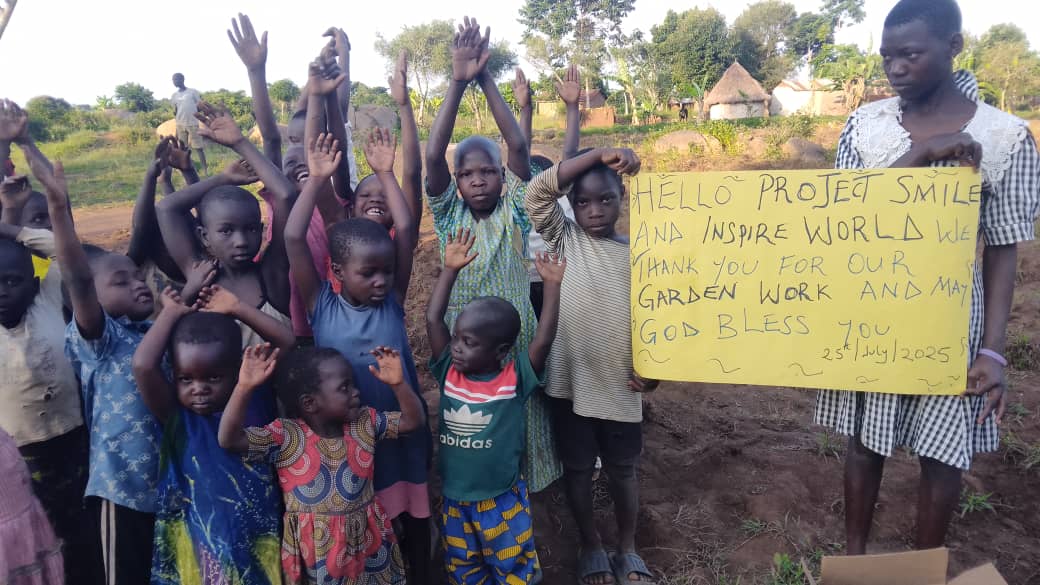 HELLO PROJECT SMILE
AND INSPIRE WORLD WE
THANK YOU FOR OUR
GARDEN WORK AND MAY
GOD BLESS YOU
25th/July/2025
abidas